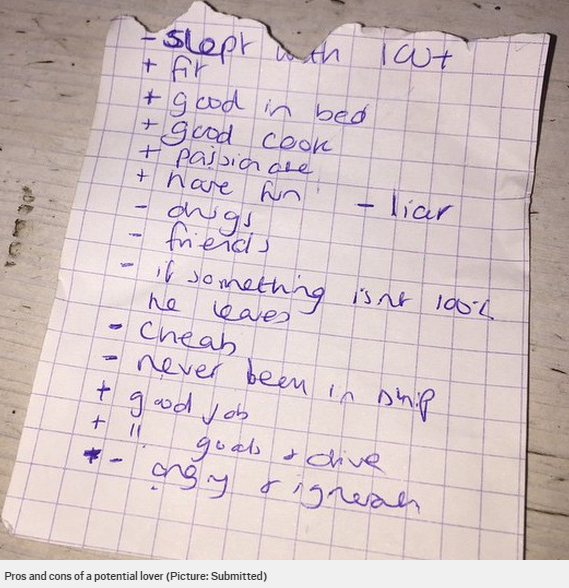 - slept with 100+
+ fit
+ good in bed
+ good cook
+ passionate
+ have fun - liar
- drugs
- friends
- if something isnt 100%
he leaves
-
- never been in
+ good job
+ " goals + drive
- angry +
Pros and cons of a potential lover (Picture: Submitted)